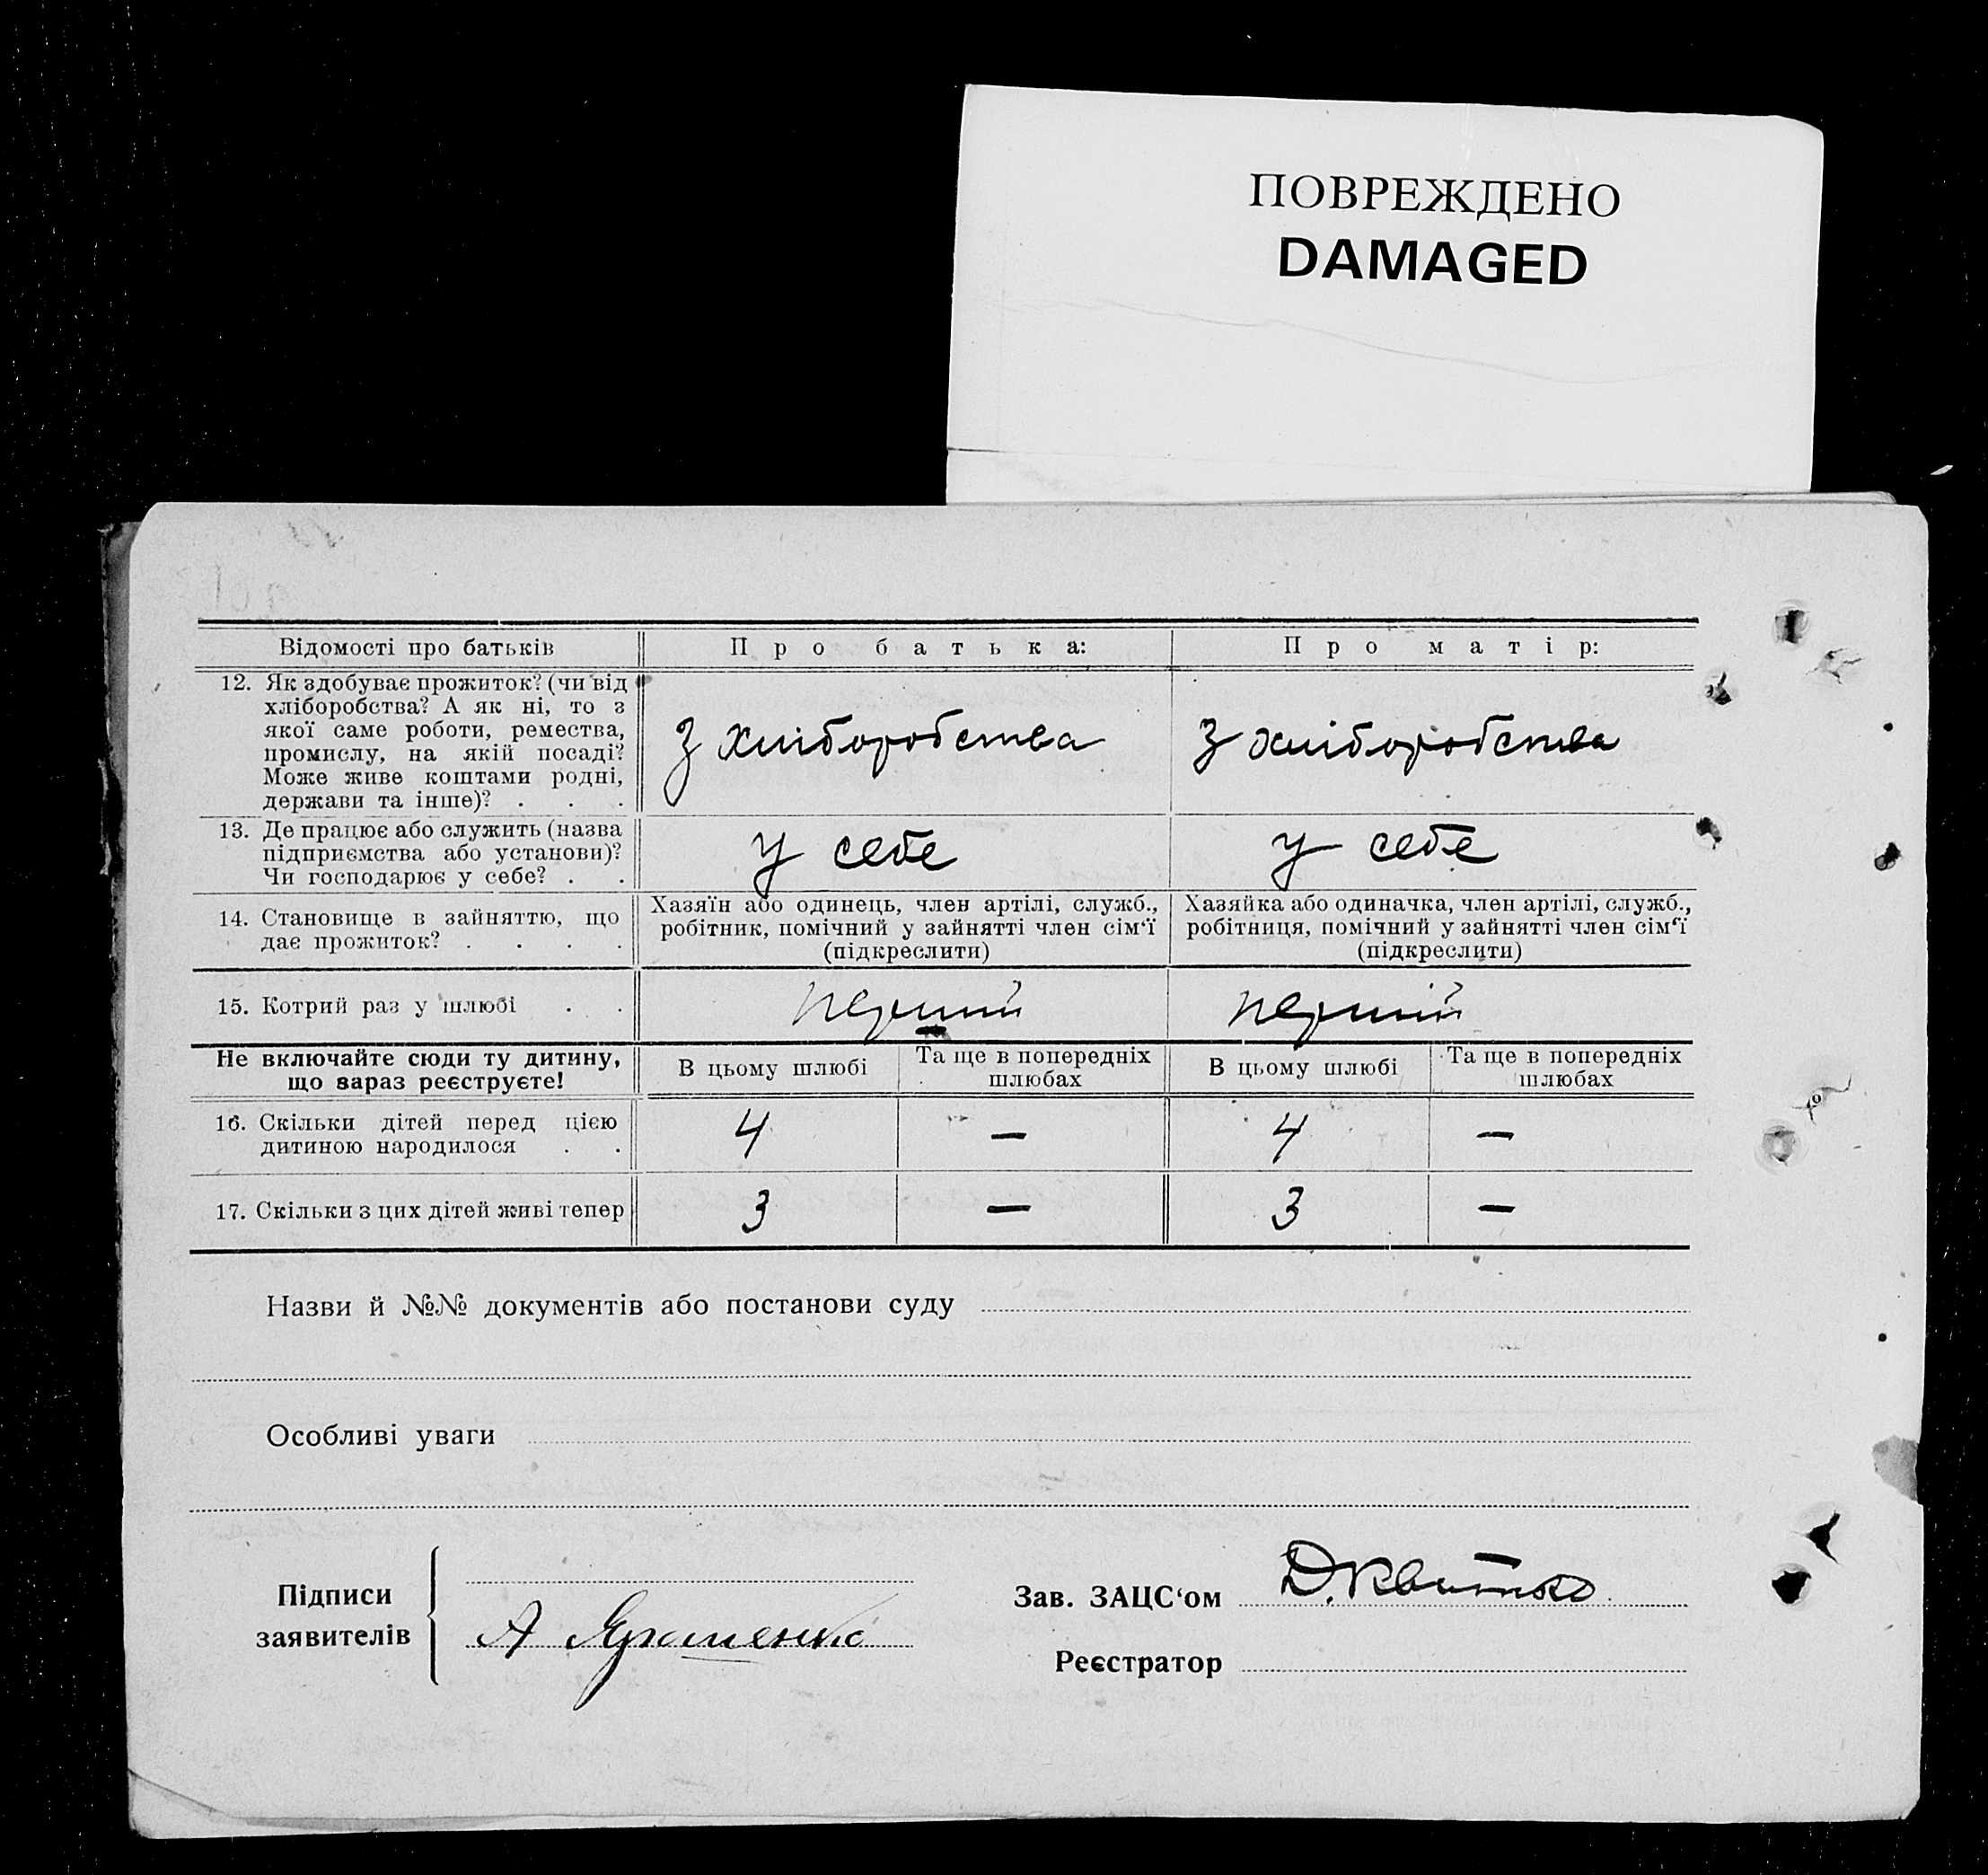 ПОВРЕЖДЕНО
DAMAGED
Відомості про батьків
Про батька:
Про матір:
12. Як здобуває прожиток? (чи від
хліборобства? А як ні, то з
якої саме роботи, ремества,
промислу, на якій посаді?
Може живе коштами родні,
держави та інше)? . . .
З хліборобства
З хліборобства
13. Де працює або служить (назва
підприємства або установи)?
Чи господарює у себе? . .
у себе
у себе
14. Становище в зайняттю, що
дає прожиток? . . . .
Хазяїн або одинець, член артілі, служб.,
робітник, помічний у зайнятті член сім‘ї
(підкреслити)
Хазяйка або одиначка, член артілі, служб.,
робітниця, помічний у зайнятті член сім‘ї
(підкреслити)
15. Котрий раз у шлюбі . .
перший
перший
Не включайте сюди ту дитину,
що зараз реєструєте!
В цьому шлюбі
Та ще в попередніх
шлюбах
В цьому шлюбі
Та ще в попередніх
шлюбах
16. Скільки дітей перед цією
дитиною народилося . .
4 — 4 —
17. Скільки з цих дітей живі тепер
3 — 3 —
Назви й №№ документів або постанови суду
Особливі уваги
Підписи
заявителів
А Ярошенко
Зав. ЗАЦС‘ом Д. Квитко
Реєстратор